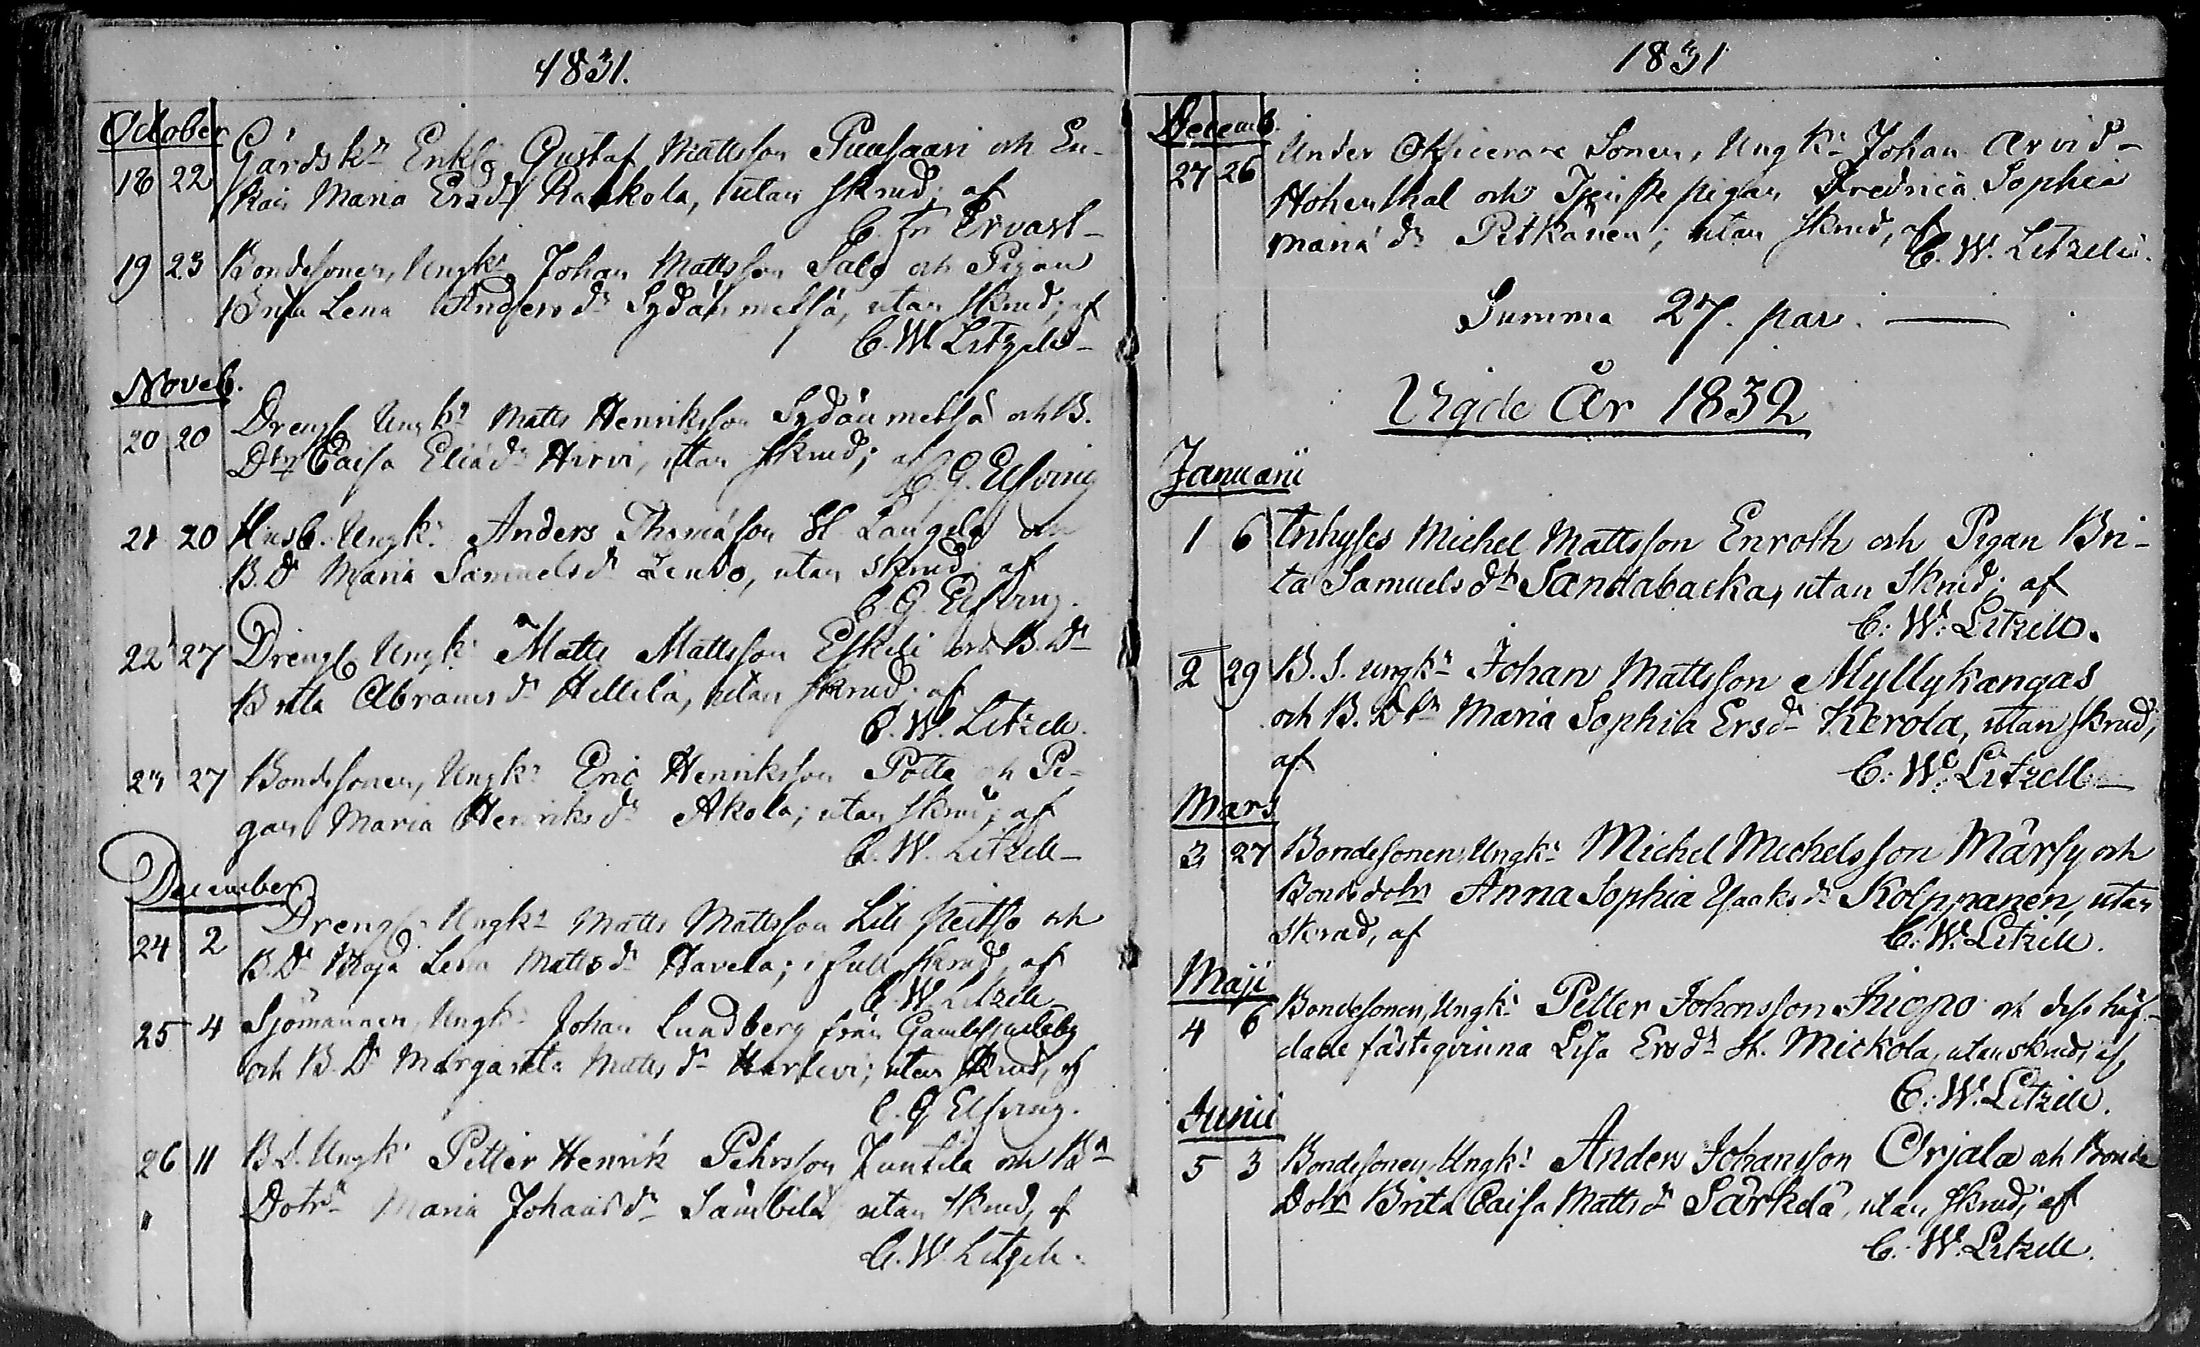 1831.
October
18 22 Gårdsk:n Enkl. Gustaf Mattsson Puusaari och En-
kan Maria Ersd:r Raskola, utan skrud; af
C. Fr Ervast
19 23 Bondesonen, Ungk: Johan Mattsson Salo och Pigan
Brita Lena Andersd:r Sydänmetsä, utan skrud; af
C. W. Litzell
Noveb.
20 20 Dreng Ungk: Matts Henriksson Sydänmetsä och B.
Dtr Caisa Eliæd:r Hirvi, utan skrud; af
C. G. Elfving
21 20 Husb. Ungk: Anders Thomasson St. Långelä och
B. Dr Maria Samuelsd:r Lendo, utan skrud; af
C. G. Elfving.
22 27 Dreng Ungk: Matts Mattsson Eskeli och B. Dr
Brita Abramsd:r Hellilä, utan skrud; af
C. W. Litzell.
23 27 Bondesonen, Ungk: Eric Henriksson Potta och Pi-
gan Maria Henriksd:r Akola; utan skrud; af
C. W. Litzell
December
24 2 Dreng Ungk: Matts Mattsson Lill och
B. Dr Maja Lena Mattsd:r Havela; i full skrud, af
C. W. Litzell
25 4 Sjömannen, Ungk: Johan Lundberg från Gamlakarleby
och B. Dr Margareta Mattsd:r Harjevi; utan skrud, af
C. G. Elfving.
26 11 B. S. Ungk: Petter Henrik Pehrsson Juntila och B:
" Dotr Maria Johansd:r utan skrud, af
C. W. Litzell.
1831
Decemb.
27 26 Under Officerare Sonen, Ungk: Johan Arvid
Hohenthal och Tjenstepigan Fredrica Sophia
Mariæd:r Pitkänen; utan skrud, af
C. W. Litzell.
Summa 27. par.
Vigde År 1832
Januarii
1 6 Inhyses Michel Mattsson Enroth och Pigan Bri-
ta Samuelsd:r Sandabacka, utan skrud; af
C. W. Litzell.
2 29 B. S. ungk: Johan Mattsson Myllykangas
och B. Dtr Maria Sophia Ersd:r Kerola, utan skrud;
af
C. W. Litzell
Mars
3 27 Bondesonen, Ungk: Michel Michelsson Märsy och
Bondedotr Anna Sophia Isaksd:r Kolppanen, utan
skrud, af
C. W. Litzell.
Maji
4 6 Bondesonen, Ungk: Petter Johansson Juopo och dess häf-
dade fästeqvinna Lisa Ersd:r St. Mickola, utan skrud, af,
C. W. Litzell.
Junii
5 3 Bondesonen, Ungk: Anders Johansson Orjala och Bonde
Dotr Brita Caisa Mattsd:r Särkelä, utan skrud; af
C. W. Litzell.